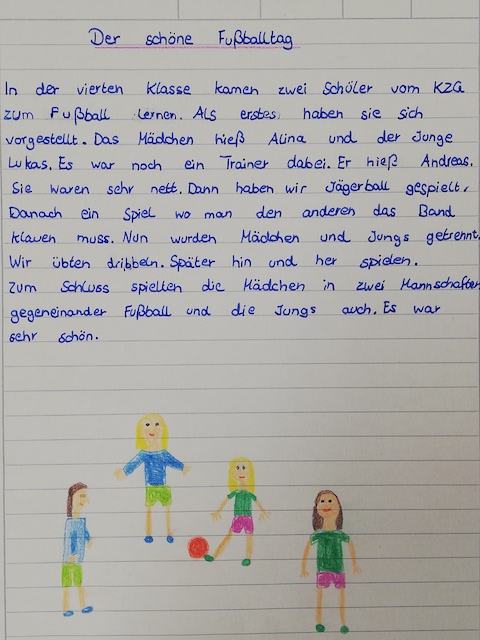 Der schöne Fußballtag
In der vierten Klasse kamen zwei Schüler vom KZG
zum Fußball lernen. Als erstes haben sie sich
vorgestellt. Das Mädchen hieß Alina und der Junge
Lukas. Es war noch ein Trainer dabei. Er hieß Andreas.
Sie waren sehr nett. Dann haben wir Jägerball gespielt.
Danach ein Spiel wo man den anderen das Band
klauen muss. Nun wurden Mädchen und Jungs getrennt.
Wir übten dribbeln. Später hin und her spielen.
Zum Schluss spielten die Mädchen in zwei Mannschaften
gegeneinander Fußball und die Jungs auch. Es war
sehr schön.